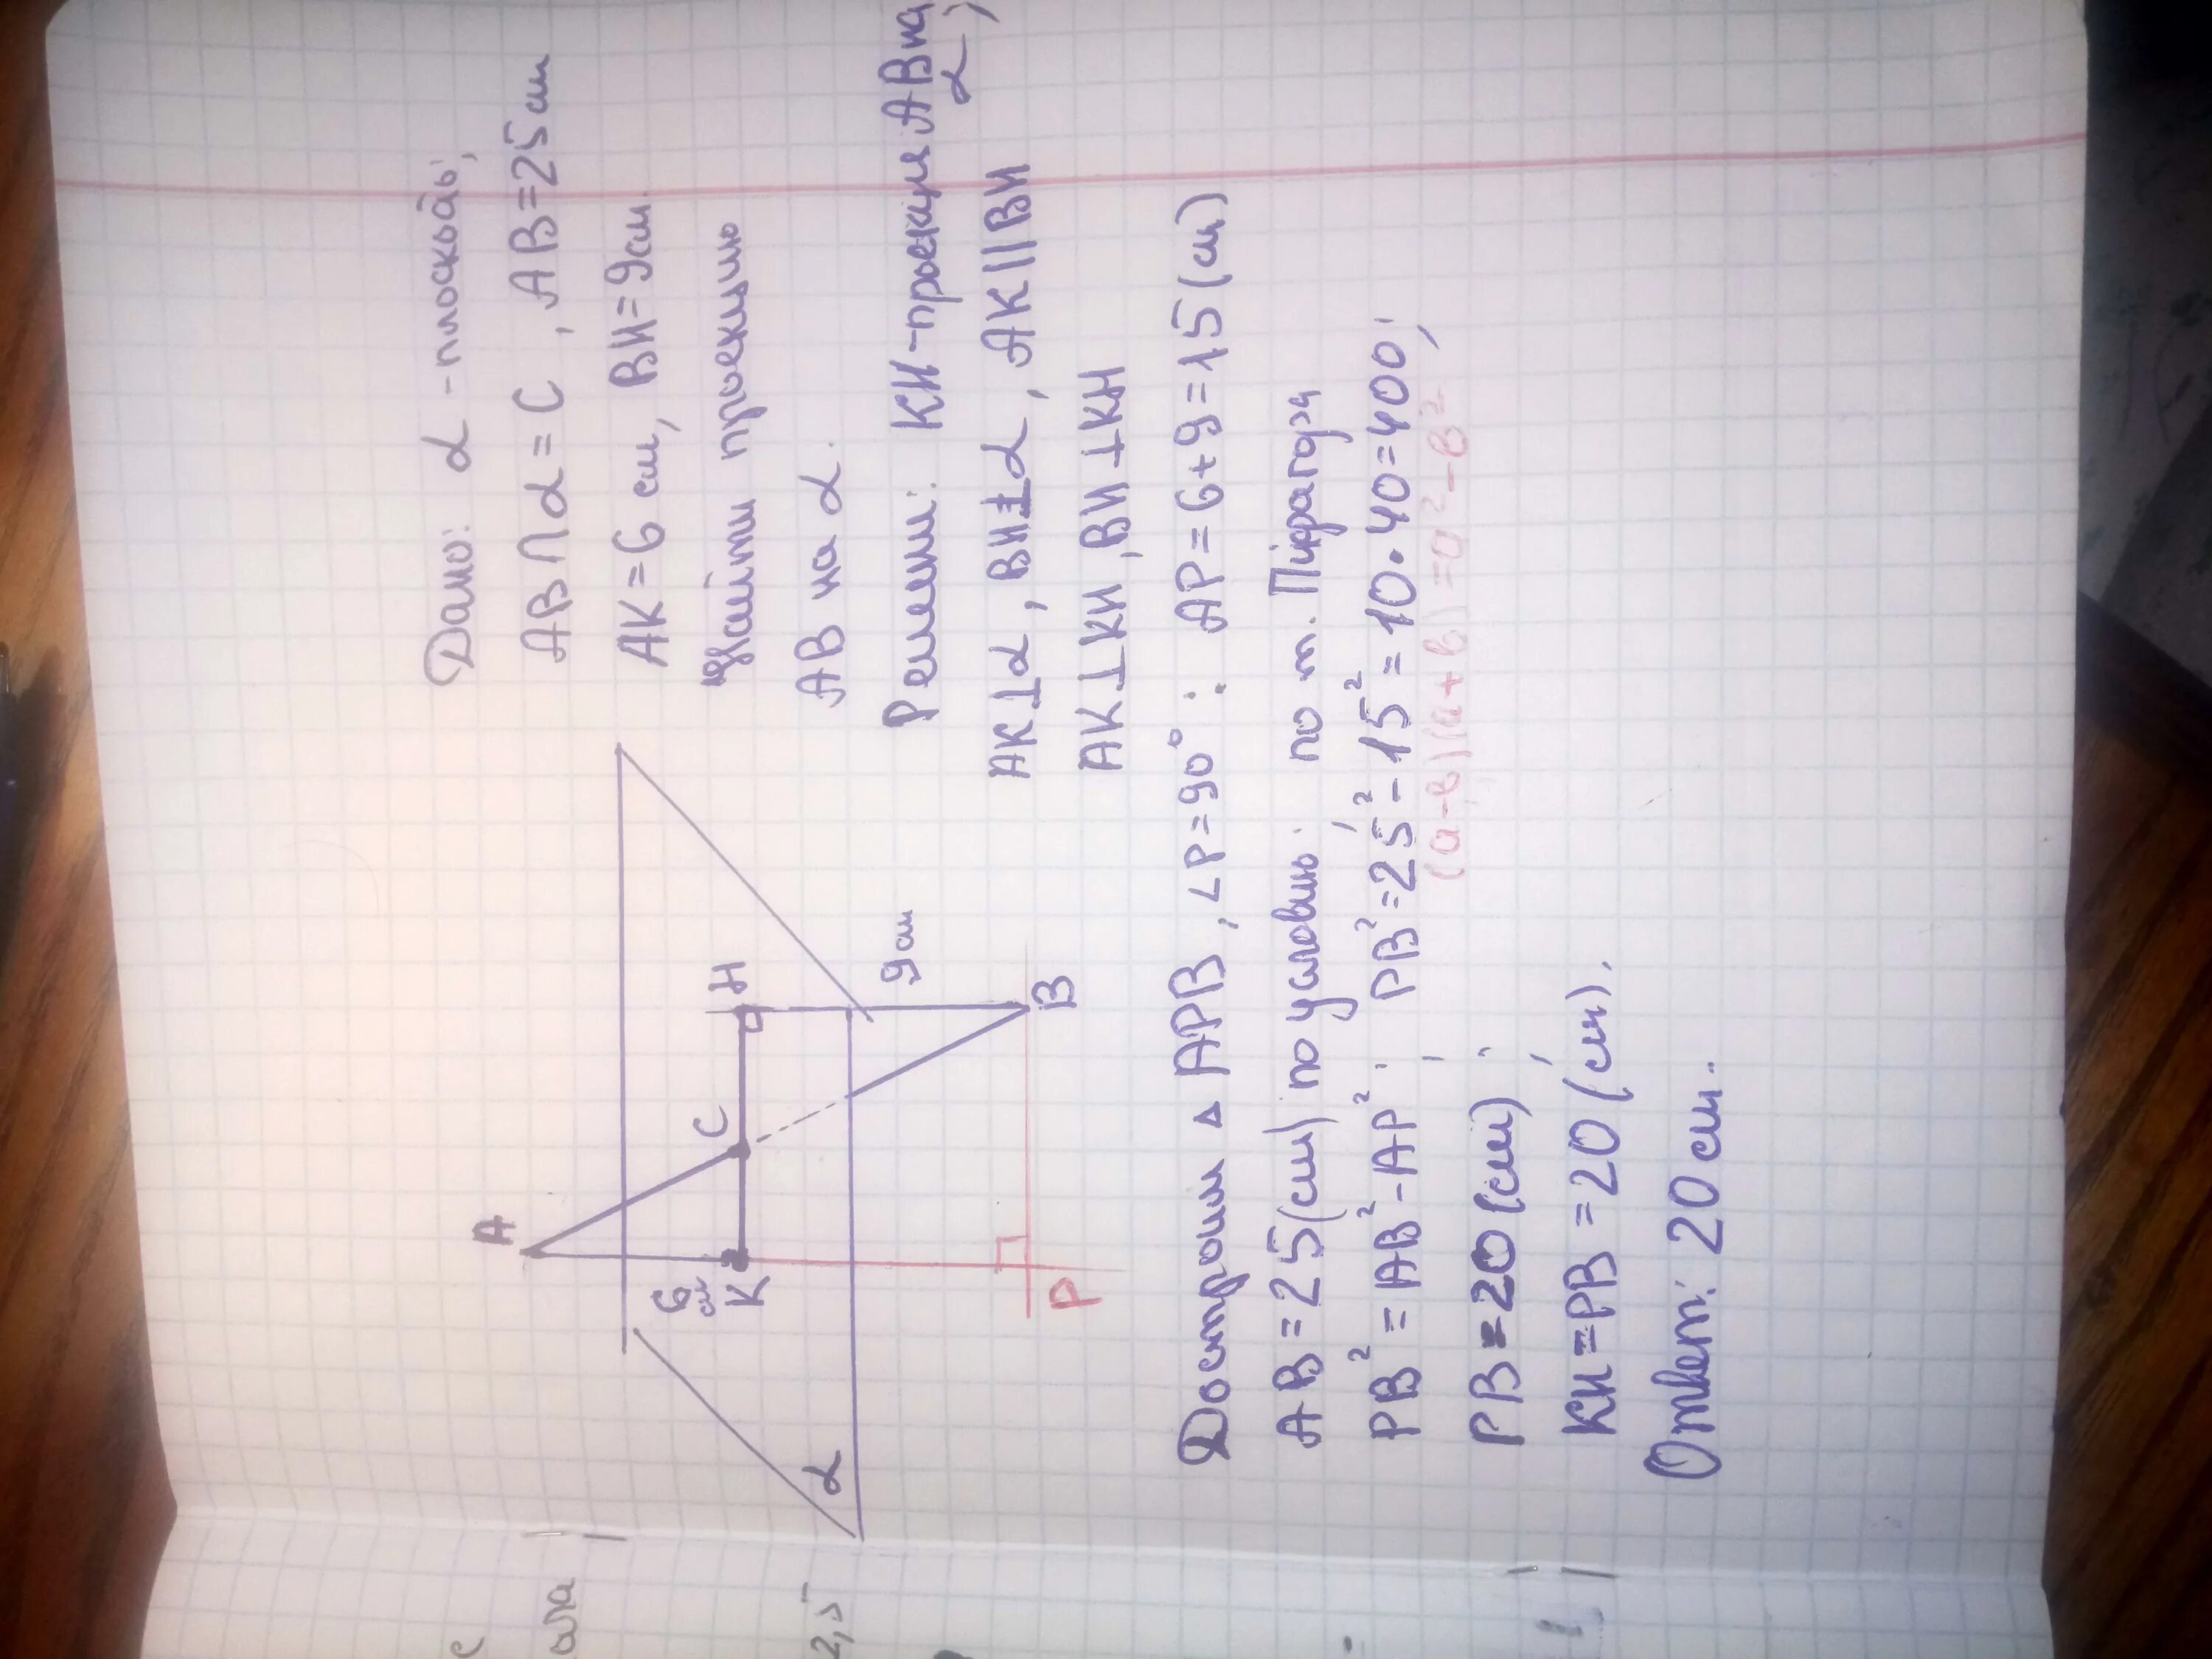 Дано: α - плоскость;
AB ∩ α = C, AB = 25 см
AK = 6 см, BH = 9 см.
Найти проекцию
AB на α.
Решение: KH - проекция AB на α;
AK ⊥ α, BH ⊥ α, AK || BH
AK ⊥ KH, BH ⊥ KH
A
6 см
K
C
H
9 см
B
P
α
Достроим △ APB, ∠P = 90°: AP = 6 + 9 = 15 (см)
AB = 25 (см) по условию. по т. Пифагора
PB² = AB² - AP²; PB² = 25² - 15² = 10 · 40 = 400;
(a-в)(a+в) = a² - в²
PB = 20 (см);
KH = PB = 20 (см).
Ответ: 20 см.
2,5